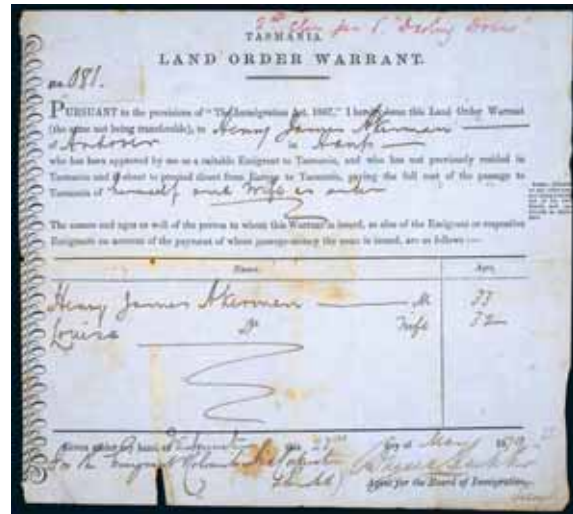 2nd Class per S. "Darling Downs"
TASMANIA.
LAND ORDER WARRANT.
No. 081.
PURSUANT to the provisions of "The Immigration Act, 1867," I hereby issue this Land Order Warrant
(the same not being transferable), to Henry James Akerman
of Andover in Hants
who has been approved by me as a suitable Emigrant to Tasmania, and who has not previously resided in
Tasmania and is about to proceed direct from Europe to Tasmania, paying the full cost of the passage to
Tasmania of himself and Wife as under
The names and ages as well of the person to whom this Warrant is issued, as also of the Emigrant or respective
Emigrants on account of the payment of whose passage-money the same is issued, are as follows:—
Names. Ages.
Henry James Akerman M 33
Louisa Do Wife 32
Given under my hand at this 27th day of May 1870
For the Emigrant &
Agent for the Board of Immigration.